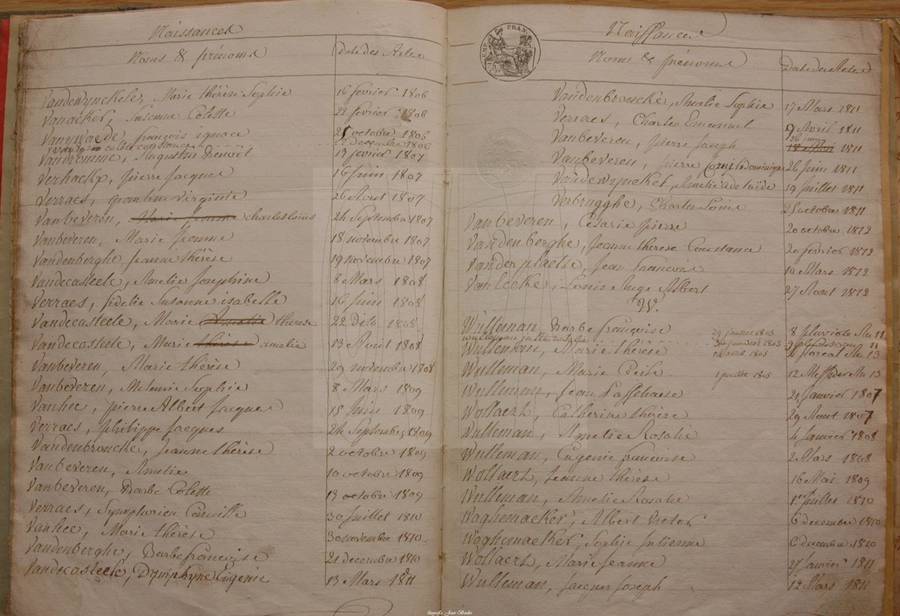 Naissances
Noms & prénoms Date des Actes
Vandewynckele, Marie Thérèse Sophie 16 fevrier 1806
Vanacker, Susanne Colette 22 fevrier 1806
françois ignace 25 octobre 1806
Vandromme, Augustin Benoit 17 fevrier 1807
Verhacke, pierre jacques 16 juin 1807
Verraes, virginie 26 Aout 1807
Vanbeveren, charles louis 24 Septembre 1807
Vanbeveren, Marie jeanne 18 novembre 1807
Vandenberghe jeanne thérèse 19 novembre 1807
Vandecasteele, Amelie Josephine 8 Mars 1808
Verraes, fidelie Susanne isabelle 16 juin 1808
Vandecasteele, Marie Amelie therese 22 dito 1808
Vandecasteele, Marie thérèse amelie 13 Aout 1808
Vanbeveren, Marie thérèse 29 novembre 1808
Vanbeveren, Melanie Sophie 8 Mars 1809
Vanhee, pierre Albert jacques 15 juin 1809
Verraes, philippe jacques 24 Septembre 1809
Vandenbroucke, jeanne thérèse 2 octobre 1809
Vanbeveren, Amelie 10 octobre 1809
Vanbeveren, Barbe Colette 19 octobre 1809
Verraes, Camille 30 juillet 1810
Vanhee, Marie thérèse 30 novembre 1810
Vandenberghe, Barbe françoise 21 decembre 1810
Vandecasteele, Dymphyne Eugenie 13 Mars 1811
Naissances
Noms & prénoms Date des Actes
Vandenbroucke, Amelie Sophie 17 Mars 1811
Verraes, Charles Emanuel 9 Avril 1811
Vanbeveren, pierre joseph
Vanbeveren, pierre Dominique 26 juin 1811
19 juillet 1811
Verbrugghe, Charles Louis 25 octobre 1811
Vanbeveren, Cesarie pierre 20 octobre 1812
Vandenberghe, Jeanne therese Constance 20 fevrier 1812
Vanderplaetse, Jean francois 10 Mars 1812
Louis Ange Albert 27 Aout 1812
W.
Wulleman, Barbe françoise 8 pluviose
Wulleman, Marie Thérèse floreal
Wulleman, Marie Cecile 12 Messidor
Wulleman, Jean 21 janvier 1807
Wollaert, Catherine thérèse 29 Aout 1807
Wulleman, Amelie Rosalie 4 janvier 1808
Wulleman, Eugenie francoise 2 Mars 1808
Wollaert, jeanne thérèse 16 Mai 1809
Wulleman, Amelie Rosalie 1er juillet 1810
Waghemacker, Albert Victor 6 decembre 1810
Waghemacker, Sophie Julienne 6 decembre 1810
Wollaert, Marie Jeanne 27 janvier 1811
Wulleman, Jacques Joseph 12 Mars 1811